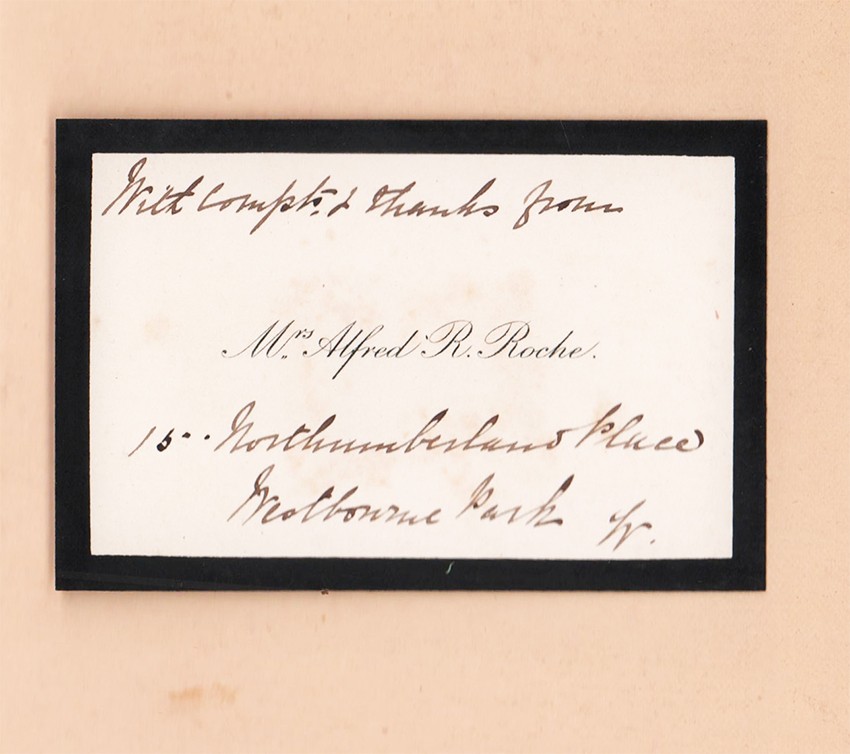 With Compts. & thanks from
Mrs. Alfred R. Roche.
15. Northumberland Place
Westbourne Park W.